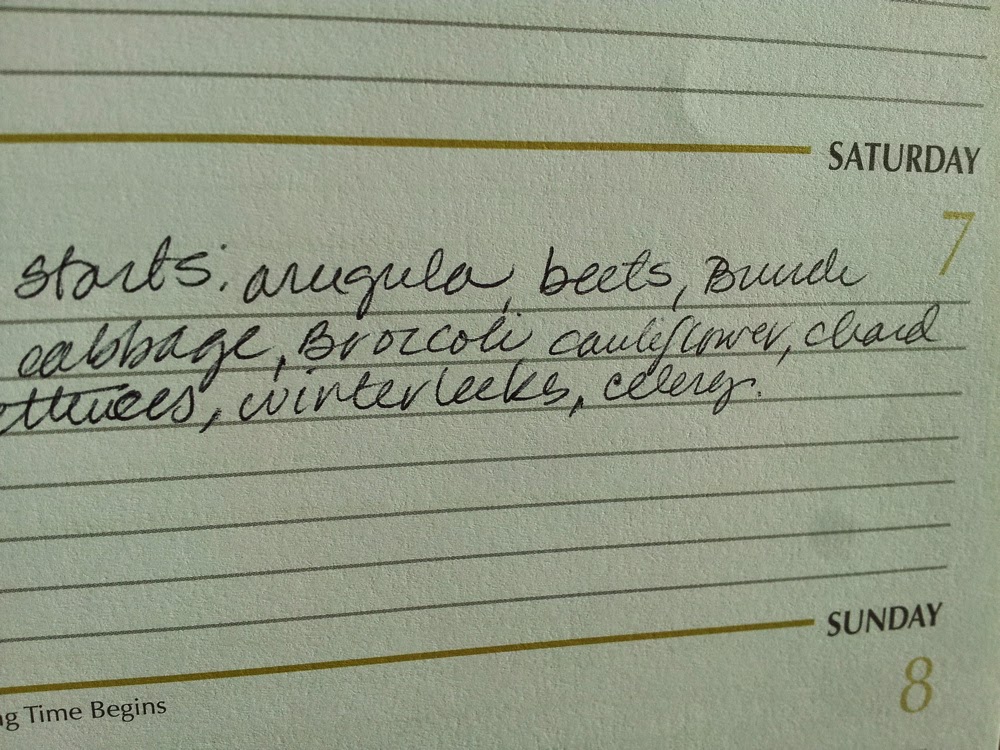 SATURDAY
7
starts: arugula, beets, Bunch
cabbage, Broccoli, cauliflower, chard
ettuces, winter leeks, celery.
SUNDAY
8
ng Time Begins